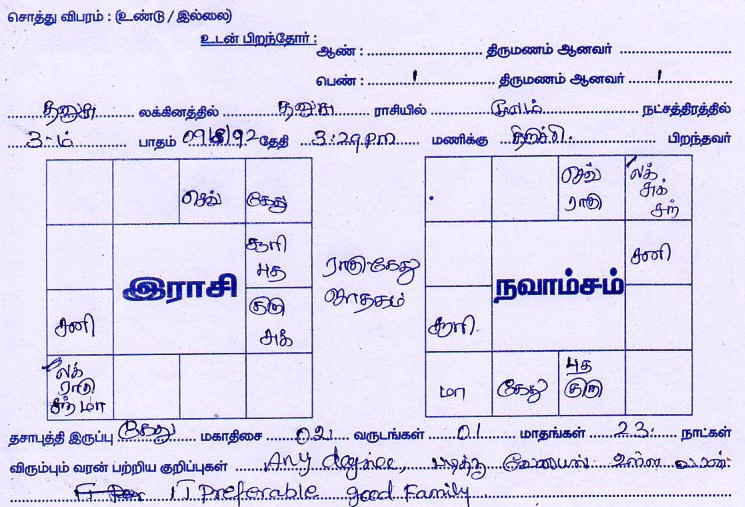 சொத்து விபரம் : (உண்டு / இல்லை)
உடன் பிறந்தோர் : ஆண் : திருமணம் ஆனவர்
பெண் : 1 திருமணம் ஆனவர் 1
தனுசு லக்கினத்தில் தனுசு ராசியில் மூலம் நட்சத்திரத்தில்
3-ம் பாதம் 09/8/92 தேதி 3:29 PM மணிக்கு திருச்சி பிறந்தவர்
செவ் கேது
செவ் ராகு லக் சுக் சந்
சூரி புத
சனி
இராசி
ராகு கேது ஜாதகம்
நவாம்சம்
சனி
குரு சுக்
சூரி
லக் ராகு சந் மா
மா கேது புத குரு
தசாபுத்தி இருப்பு கேது மகாதிசை 02 வருடங்கள் 01 மாதங்கள் 23 நாட்கள்
விரும்பும் வரன் பற்றிய குறிப்புகள் Any degree, படித்து வேலையில் உள்ள வரன்
IT Preferable good Family